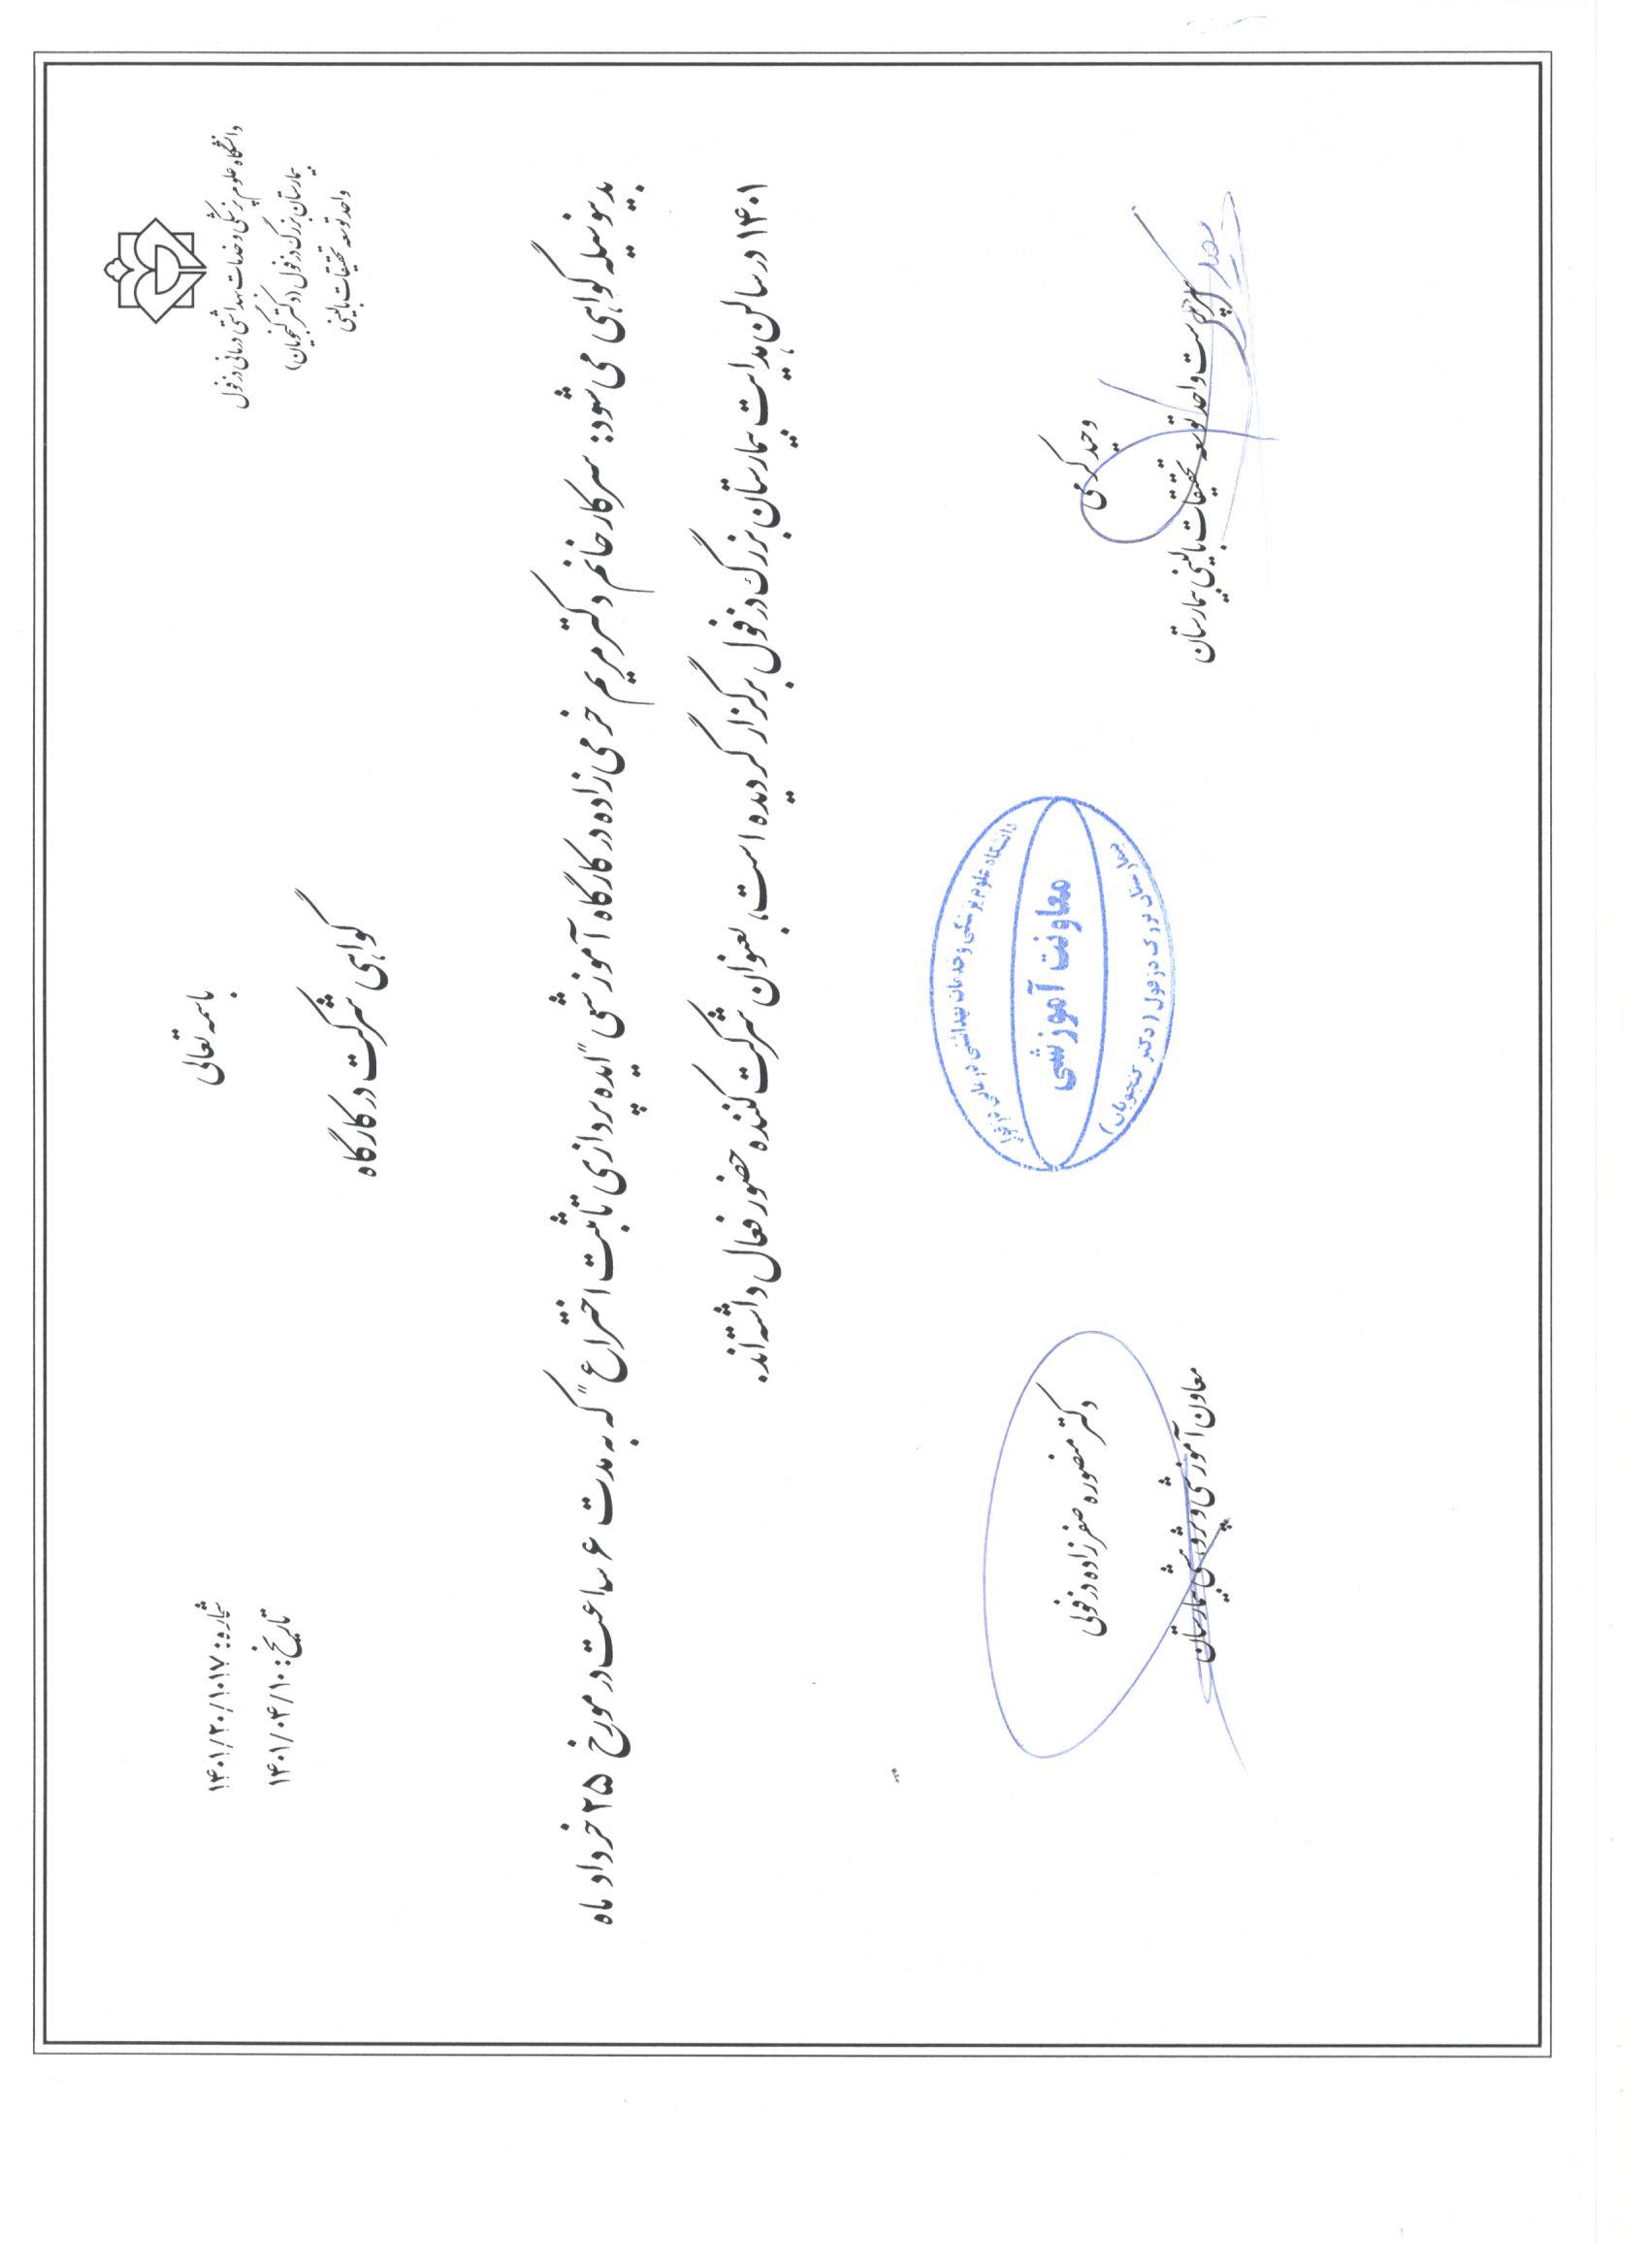 باسمه تعالی
دانشگاه علوم پزشکی و خدمات بهداشتی درمانی دزفول
بیمارستان بزرگ دزفول (دکتر گنجویان)
واحد توسعه تحقیقات بالینی
شماره: ۱۴۰۱/۲۰/۱۰۱۷
تاریخ: ۱۴۰۱/۰۴/۱۰
گواهی شرکت در کارگاه
بدینوسیله گواهی می شود: سرکار خانم دکتر مریم خرمی زاده در کارگاه آموزشی "ایده پردازی تا ثبت اختراع" که به مدت ۶ ساعت در مورخ ۲۵ خرداد ماه
۱۴۰۱ در سالن هدایت بیمارستان بزرگ دزفول برگزار گردیده است، بعنوان شرکت کننده حضور فعال داشته اند.
وحید کرمی
سرپرست واحد توسعه تحقیقات بالینی بیمارستان
دانشگاه علوم پزشکی و خدمات بهداشتی درمانی دزفول
معاونت آموزشی
بیمارستان بزرگ دزفول (دکتر گنجویان)
دکتر منصوره صفرزاده دزفولی
معاون آموزشی و پژوهشی بیمارستان